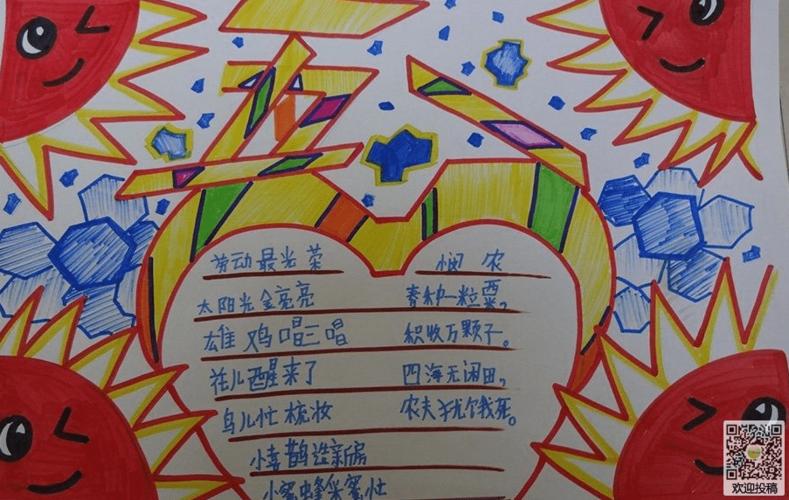 五一
劳动最光荣
太阳光金亮亮
雄鸡唱三唱
花儿醒来了
鸟儿忙梳妆
小喜鹊造新房
小蜜蜂采蜜忙
悯农
春种一粒粟，
秋收万颗子。
四海无闲田，
农夫犹饿死。
欢迎投稿